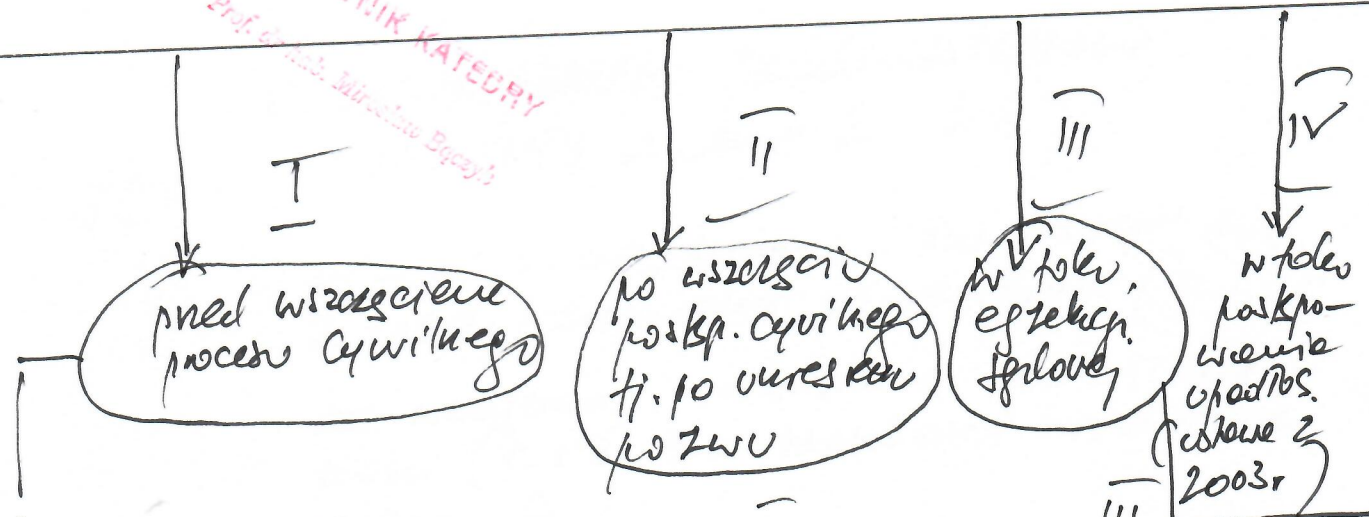 KATEDRY
Prof. dr hab. Mirosław Bączyk
I
II
III
IV
przed wszczęciem
procesu cywilnego
po wszczęciu
postęp. cywilnego
tj. po
pozwu
w toku
egzekucji
sądowej
w toku
postępo-
wania
upadłoś.
(ustawa z
2003r)
III